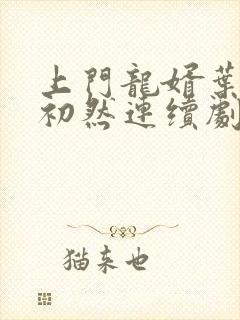 上門龍婿葉
初然連續劇
猫来也